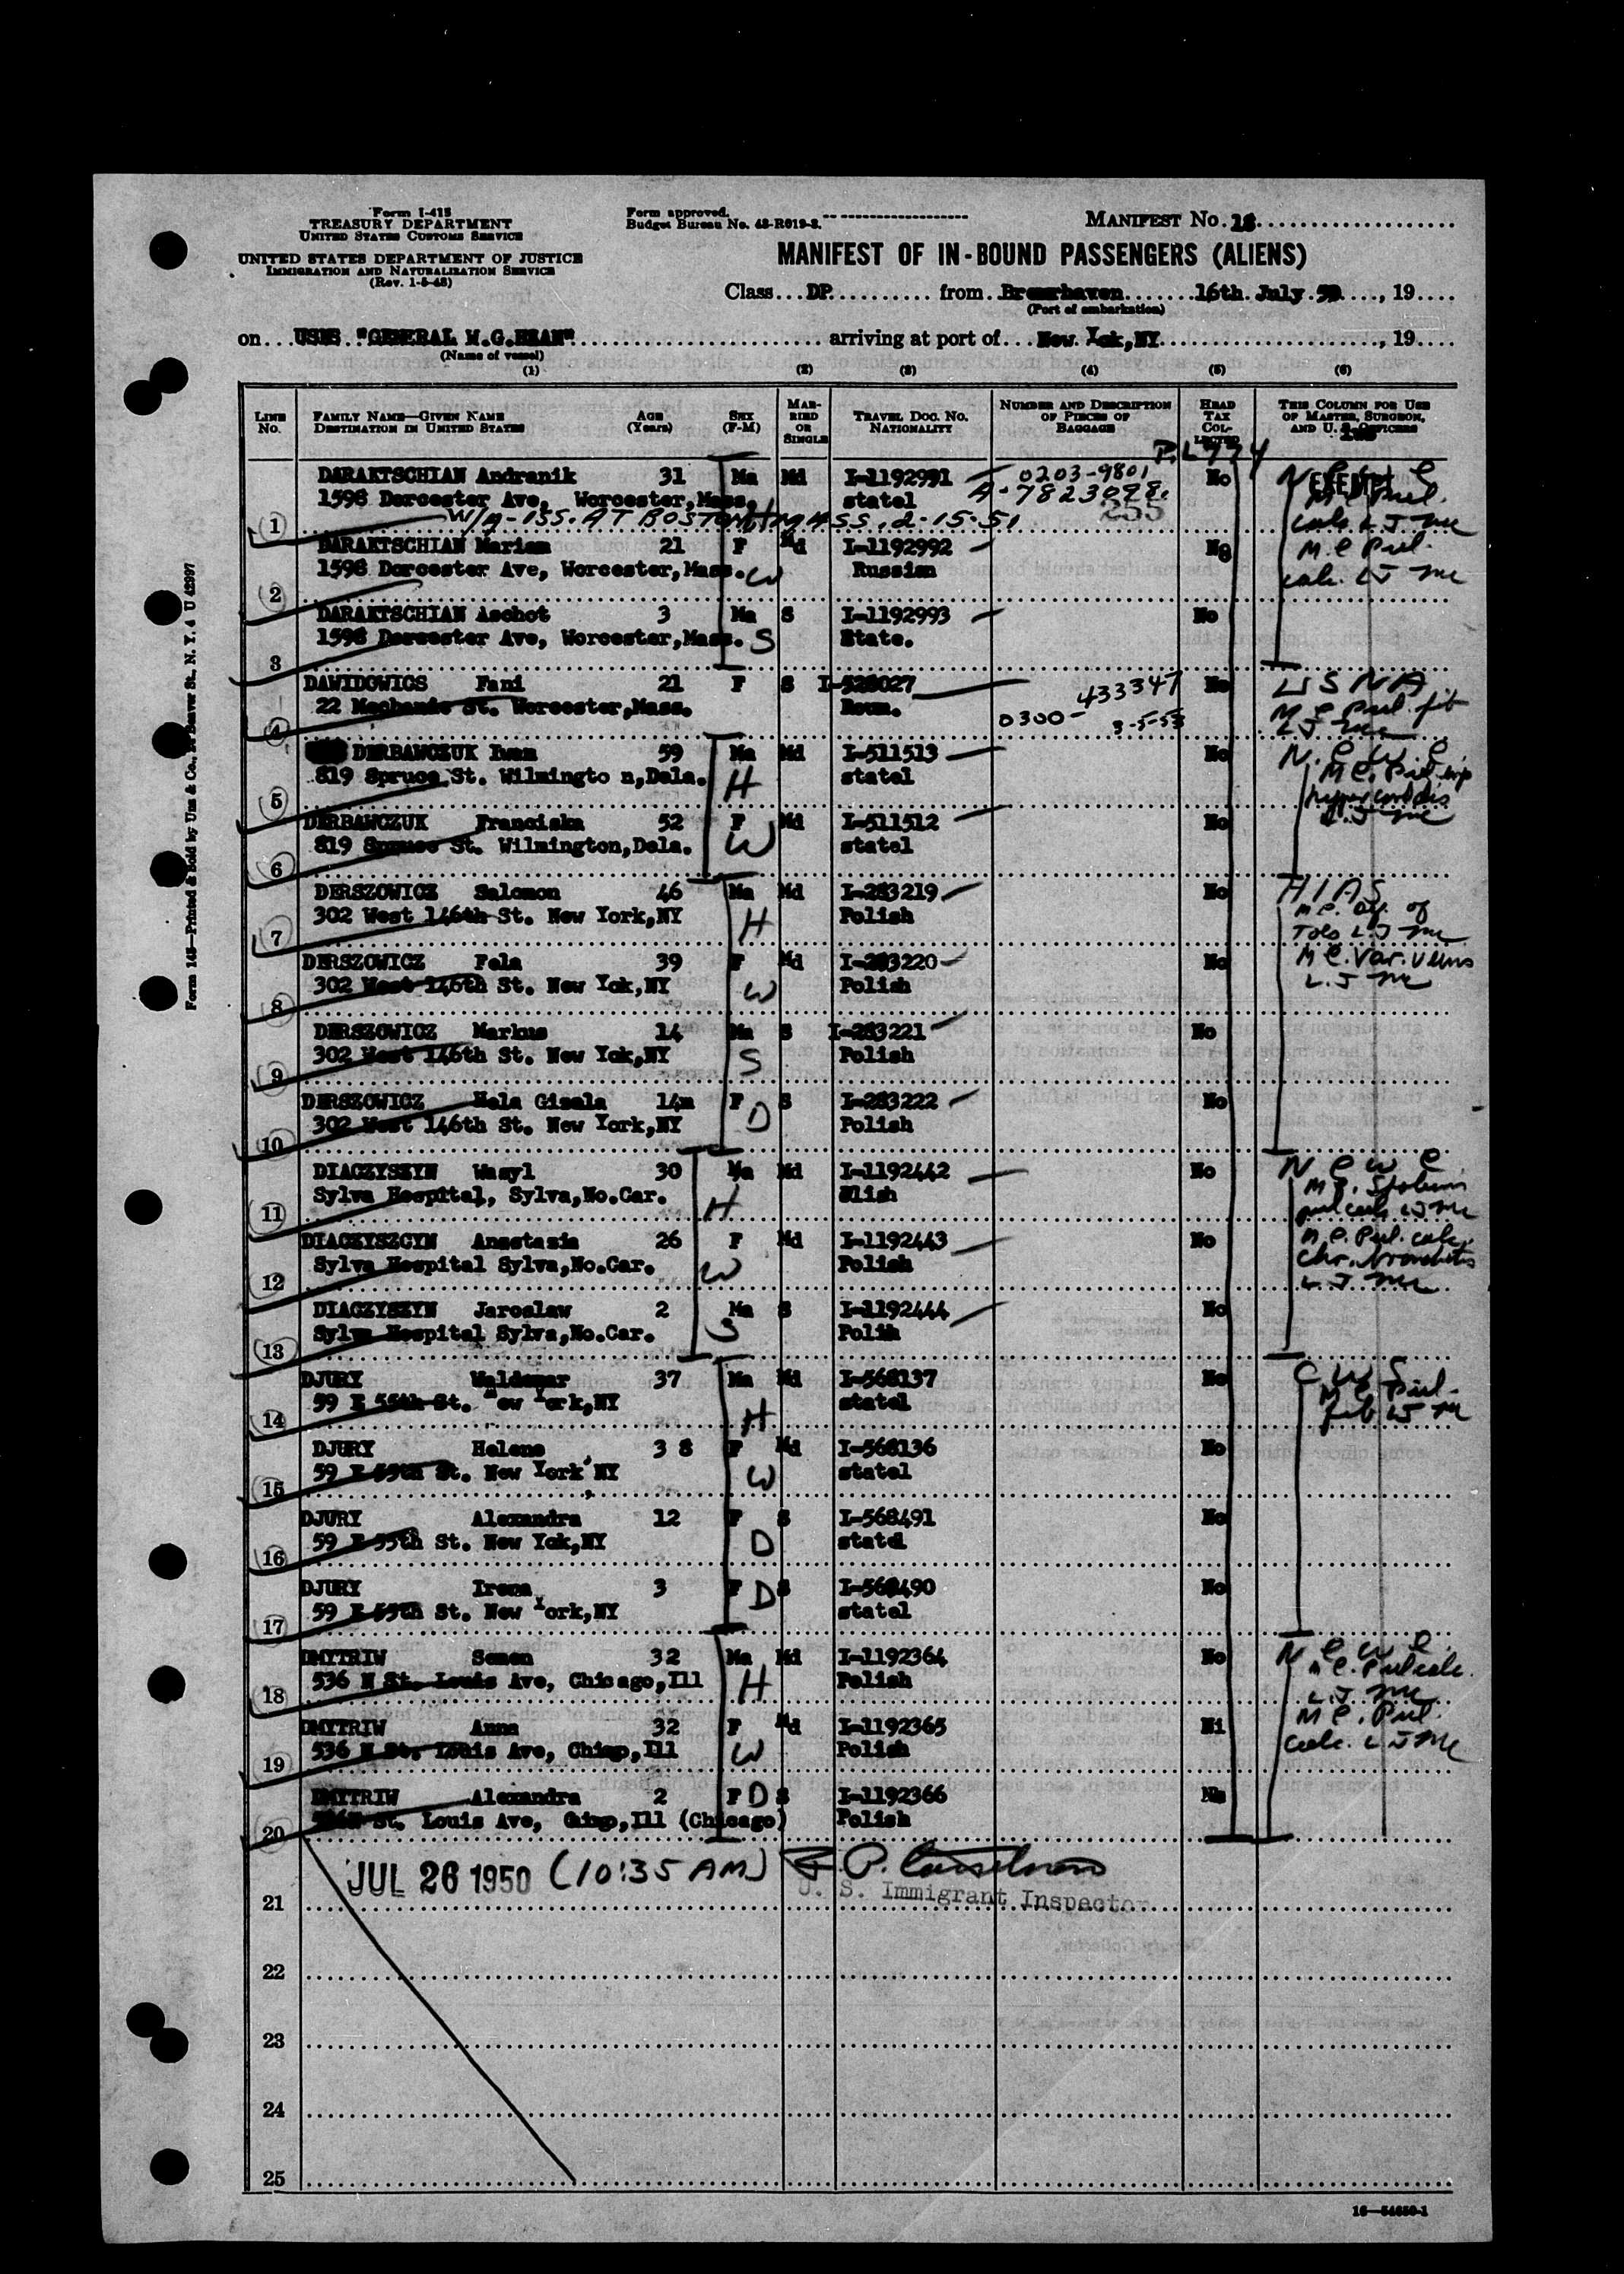 Form I-415
TREASURY DEPARTMENT
UNITED STATES CUSTOMS SERVICE
UNITED STATES DEPARTMENT OF JUSTICE
IMMIGRATION AND NATURALIZATION SERVICE
(Rev. 1-5-48)
Form approved.
Budget Bureau No. 43-R019-2.
MANIFEST NO. 18
MANIFEST OF IN-BOUND PASSENGERS (ALIENS)
Class DP from Bremerhaven 16th July 50, 19
(Port of embarkation)
on USNS "GENERAL M.G.HEAN" arriving at port of New York,NY , 19
(Name of vessel)
(1) (2) (3) (4) (5) (6)
LINE NO. FAMILY NAME—GIVEN NAME DESTINATION IN UNITED STATES AGE (Years) SEX (F-M) MARRIED OR SINGLE TRAVEL DOC. NO. NATIONALITY NUMBER AND DESCRIPTION OF PIECES OF BAGGAGE HEAD TAX COLLECTED THIS COLUMN FOR USE OF MASTER, SURGEON, AND U. S. OFFICERS
P.L 774
DARAKTSCHIAN Andranik 31 Ma Md I-1192991 0203-9801 No EXEMPT
1598 Dorcester Ave, Worcester,Mass. statel A-7823098. 255
1 W/A-155. AT BOSTON, MASS. 2-15-51 H
DARAKTSCHIAN Mariam 21 F Md I-1192992 No M.C Pul.
1598 Dorcester Ave, Worcester,Mass. W Russian calc. LJ Mc
2
DARAKTSCHIAN Aschot 3 Ma S I-1192993 No
1598 Dorcester Ave, Worcester,Mass. S State.
3
DAWIDOWICS Fani 21 F S I-528027 433347 No USNA
22 Mechanic St. Worcester,Mass. Roum. 0300- 3-5-53 M C Pul. fib
4 LJ Mc
DERBAWCZUK Iwan 59 Ma Md I-511513 No N.C.W.C
819 Spruce St. Wilmingto n,Dela. H statel
5
DERBAWCZUK Franciska 52 F Md I-511512 No
819 Spruce St. Wilmington,Dela. W statel
6
DERSZOWICZ Salomon 46 Ma Md I-283219 No HIAS
302 West 146th St. New York,NY H Polish
7
DERSZOWICZ Fela 39 F Md I-283220 No M C. Var. veins
302 West 146th St. New Yok,NY W Polish L.J Mc
8
DERSZOWICZ Markus 14 Ma S I-283221 No
302 West 146th St. New Yok,NY S Polish
9
DERSZOWICZ Hela Gisela 14m F S I-283222 No
302 West 146th St. New York,NY D Polish
10
DIACZYSZYN Wasyl 30 Ma Md I-1192442 No N C W C
Sylva Hospital, Sylva,No.Car. H
11
DIACZYSZCYN Anastazia 26 F Md I-1192443 No M.C. Pul. calc.
Sylva Hospital Sylva,No.Car. W Polish chr. bronchitis
12 L.J Mc
DIACZYSZYN Jaroslaw 2 Ma S I-1192444 No
Sylva Hospital Sylva,No.Car. S Polih
13
DJURY Waldemar 37 Ma Md I-568137 No C W S
59 E 55th St. New York,NY H statel M C Pul.
14 fib LJ Mc
DJURY Helene 3 8 F Md I-568136 No
59 E 55th St. New York,NY W statel
15
DJURY Alexandra 12 F S I-568491 No
59 E 55th St. New Yok,NY D statel
16
DJURY Irena 3 F D S I-568490 No
59 E 55th St. New York,NY statel
17
DMYTRIW Semen 32 Ma Md I-1192364 No N C W C
536 N St. Louis Ave, Chicago,Ill H Polish M C. Pul calc.
18 L.J Mc
DMYTRIW Anna 32 F Md I-1192365 Ni M C. Pul.
536 N St. Louis Ave, Chimp,Ill W Polish calc. LJ Mc
19
DMYTRIW Alexandra 2 F D S I-1192366
536N St. Louis Ave, Chimp,Ill (Chicago) Polish
20
JUL 26 1950 (10:35 AM)
U. S. Immigrant Inspector
21
22
23
24
25
16—54650-1
Form 145—Printed & Sold by Unz & Co., 24 Beaver St., N. Y. 4 U 42997